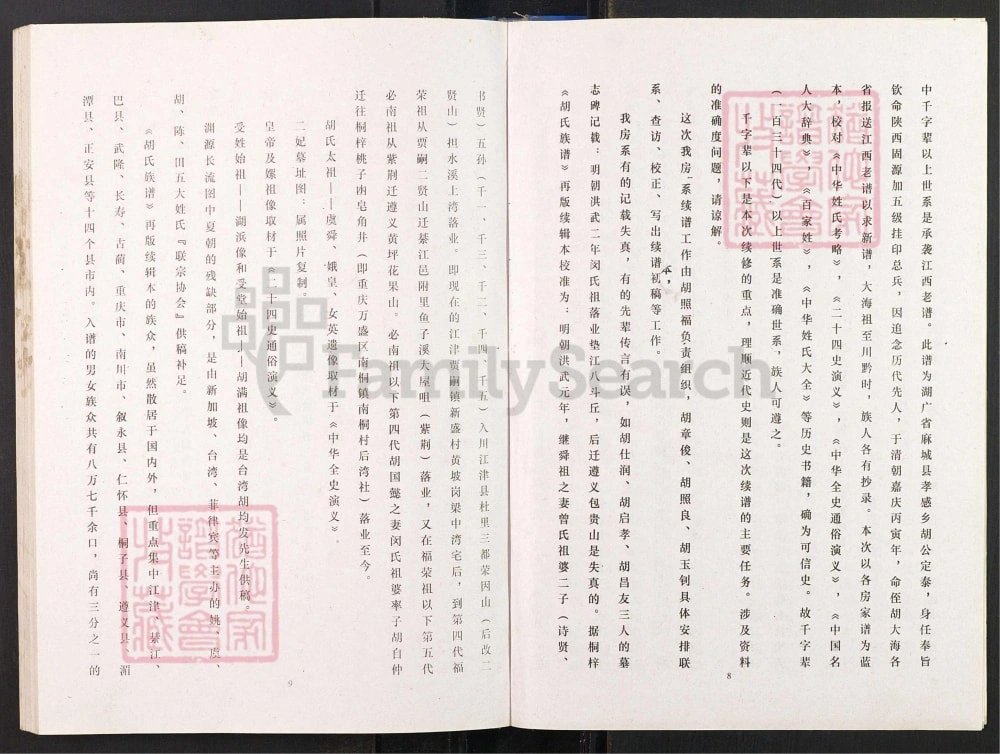 中千字辈以上世系是承袭江西老谱。此谱为湖广省麻城县孝感乡胡公定泰,身任奉旨
钦命陕西固源加五级挂印总兵,因追念历代先人,于清朝嘉庆丙寅年,命侄胡大海各
省报送江西老谱以求新谱,大海祖至川黔时,族人各有抄录。本次以各房家谱为蓝
本,校对《中华姓氏考略》,《二十四史演义》,《中华全史通俗演义》,《中国名
人大辞典》,《百家姓》,《中华姓氏大全》等历史书籍,确为可信史。故千字辈
(一百三十四代)以上世系是准确世系,族人可遵之。
千字辈以下是本次续修的重点,理顺近代史则是这次续谱的主要任务。涉及资料
的准确度问题,请谅解。
这次我房系续谱工作由胡照福负责组织,胡章俊、胡照良、胡玉钊具体安排联
系、查访、校正、写出续谱初稿等工作。
我房系有的记载失真,有的先辈传言有误,如胡仕润、胡启孝、胡昌友三人的墓
志碑记载:明朝洪武二年闵氏祖落业垫江八斗丘,后迁遵义包贵山是失真的。据桐梓
《胡氏族谱》再版续辑本校准为:明朝洪武元年,继舜祖之妻曾氏祖婆二子(诗贤、
8
书贤)五孙(千一、千三、千二、千四、千五)入川江津县杜里三都荣因山(后改二
贤山)担水溪上湾落业。即现在的江津贾嗣镇新盛村黄坡岗梁中湾宅后,到第四代福
荣祖从贾嗣二贤山迁綦江邑附里鱼子溪大屋咀(紫荆)落业,又在福荣祖以下第五代
必南祖从紫荆迁遵义黄坪花果山。必南祖以下第四代胡国懿之妻闵氏祖婆率子胡自仲
迁往桐梓桃子凼皂角井(即重庆万盛区南桐镇南桐村后湾社)落业至今。
胡氏太祖——虞舜、娥皇、女英遗像取材于《中华全史演义》。
二妃墓址图:属照片复制。
皇帝及嫘祖像取材于《二十四史通俗演义》。
受姓始祖——湖浜像和受堂始祖——胡满祖像均是台湾胡均发先生供稿。
渊源长流图中夏朝的残缺部分,是由新加坡、台湾、菲律宾等主办的姚、虞、
胡、陈、田五大姓氏『联宗协会』供稿补足。
《胡氏族谱》再版续辑本的族众,虽然散居于国内外,但重点集中江津、綦江、
巴县、武隆、长寿、古蔺、重庆市、南川市、叙永县、仁怀县、桐子县、遵义县、湄
潭县、正安县等十四个县市内。入谱的男女族众共有八万七千余口,尚有三分之一的
9
FamilySearch